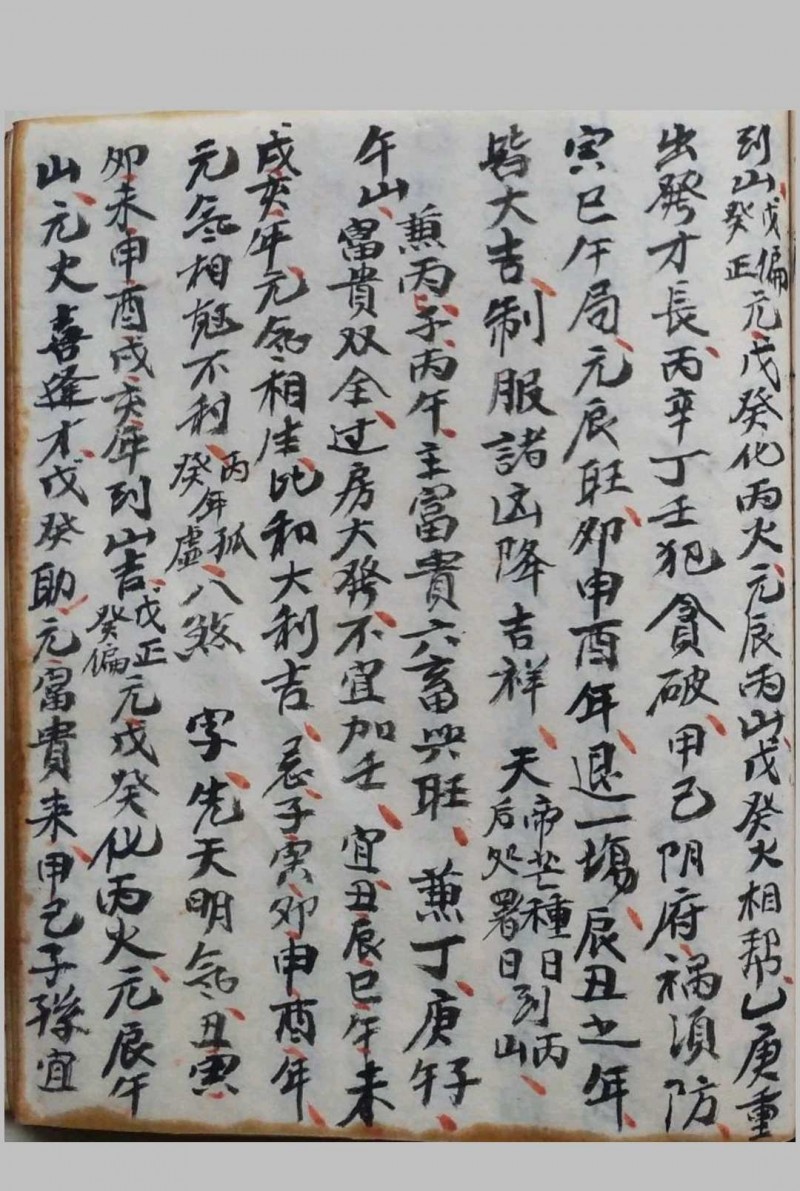 到山、戊偏癸正元、戊癸化丙火、元辰丙山戊癸火相幫、乙庚重
出發才長、丙辛丁壬犯貪破、甲己阴府禍須防、
寅巳午局、元辰旺、卯申酉年、退一塲、辰丑之年、
皆大吉、制服諸凶降吉祥、天帝芒種日到丙后处署日山、
兼丙、子、丙午、主富貴六畜興旺、兼丁、庚午子、
午山、富貴双全、过房大發、不宜加壬、宜丑、辰巳午未
戌亥年、元氣相生、比和大利吉、忌子、寅卯申酉年、
元氣相尅不利、丙年孤癸年虛、八煞字、先天明氣、丑、寅
卯未申酉戌亥年到山吉、戊正癸偏元、戊癸化丙火、元辰午
山、元火喜逢才、戊癸助元富貴来、甲己子孫宜